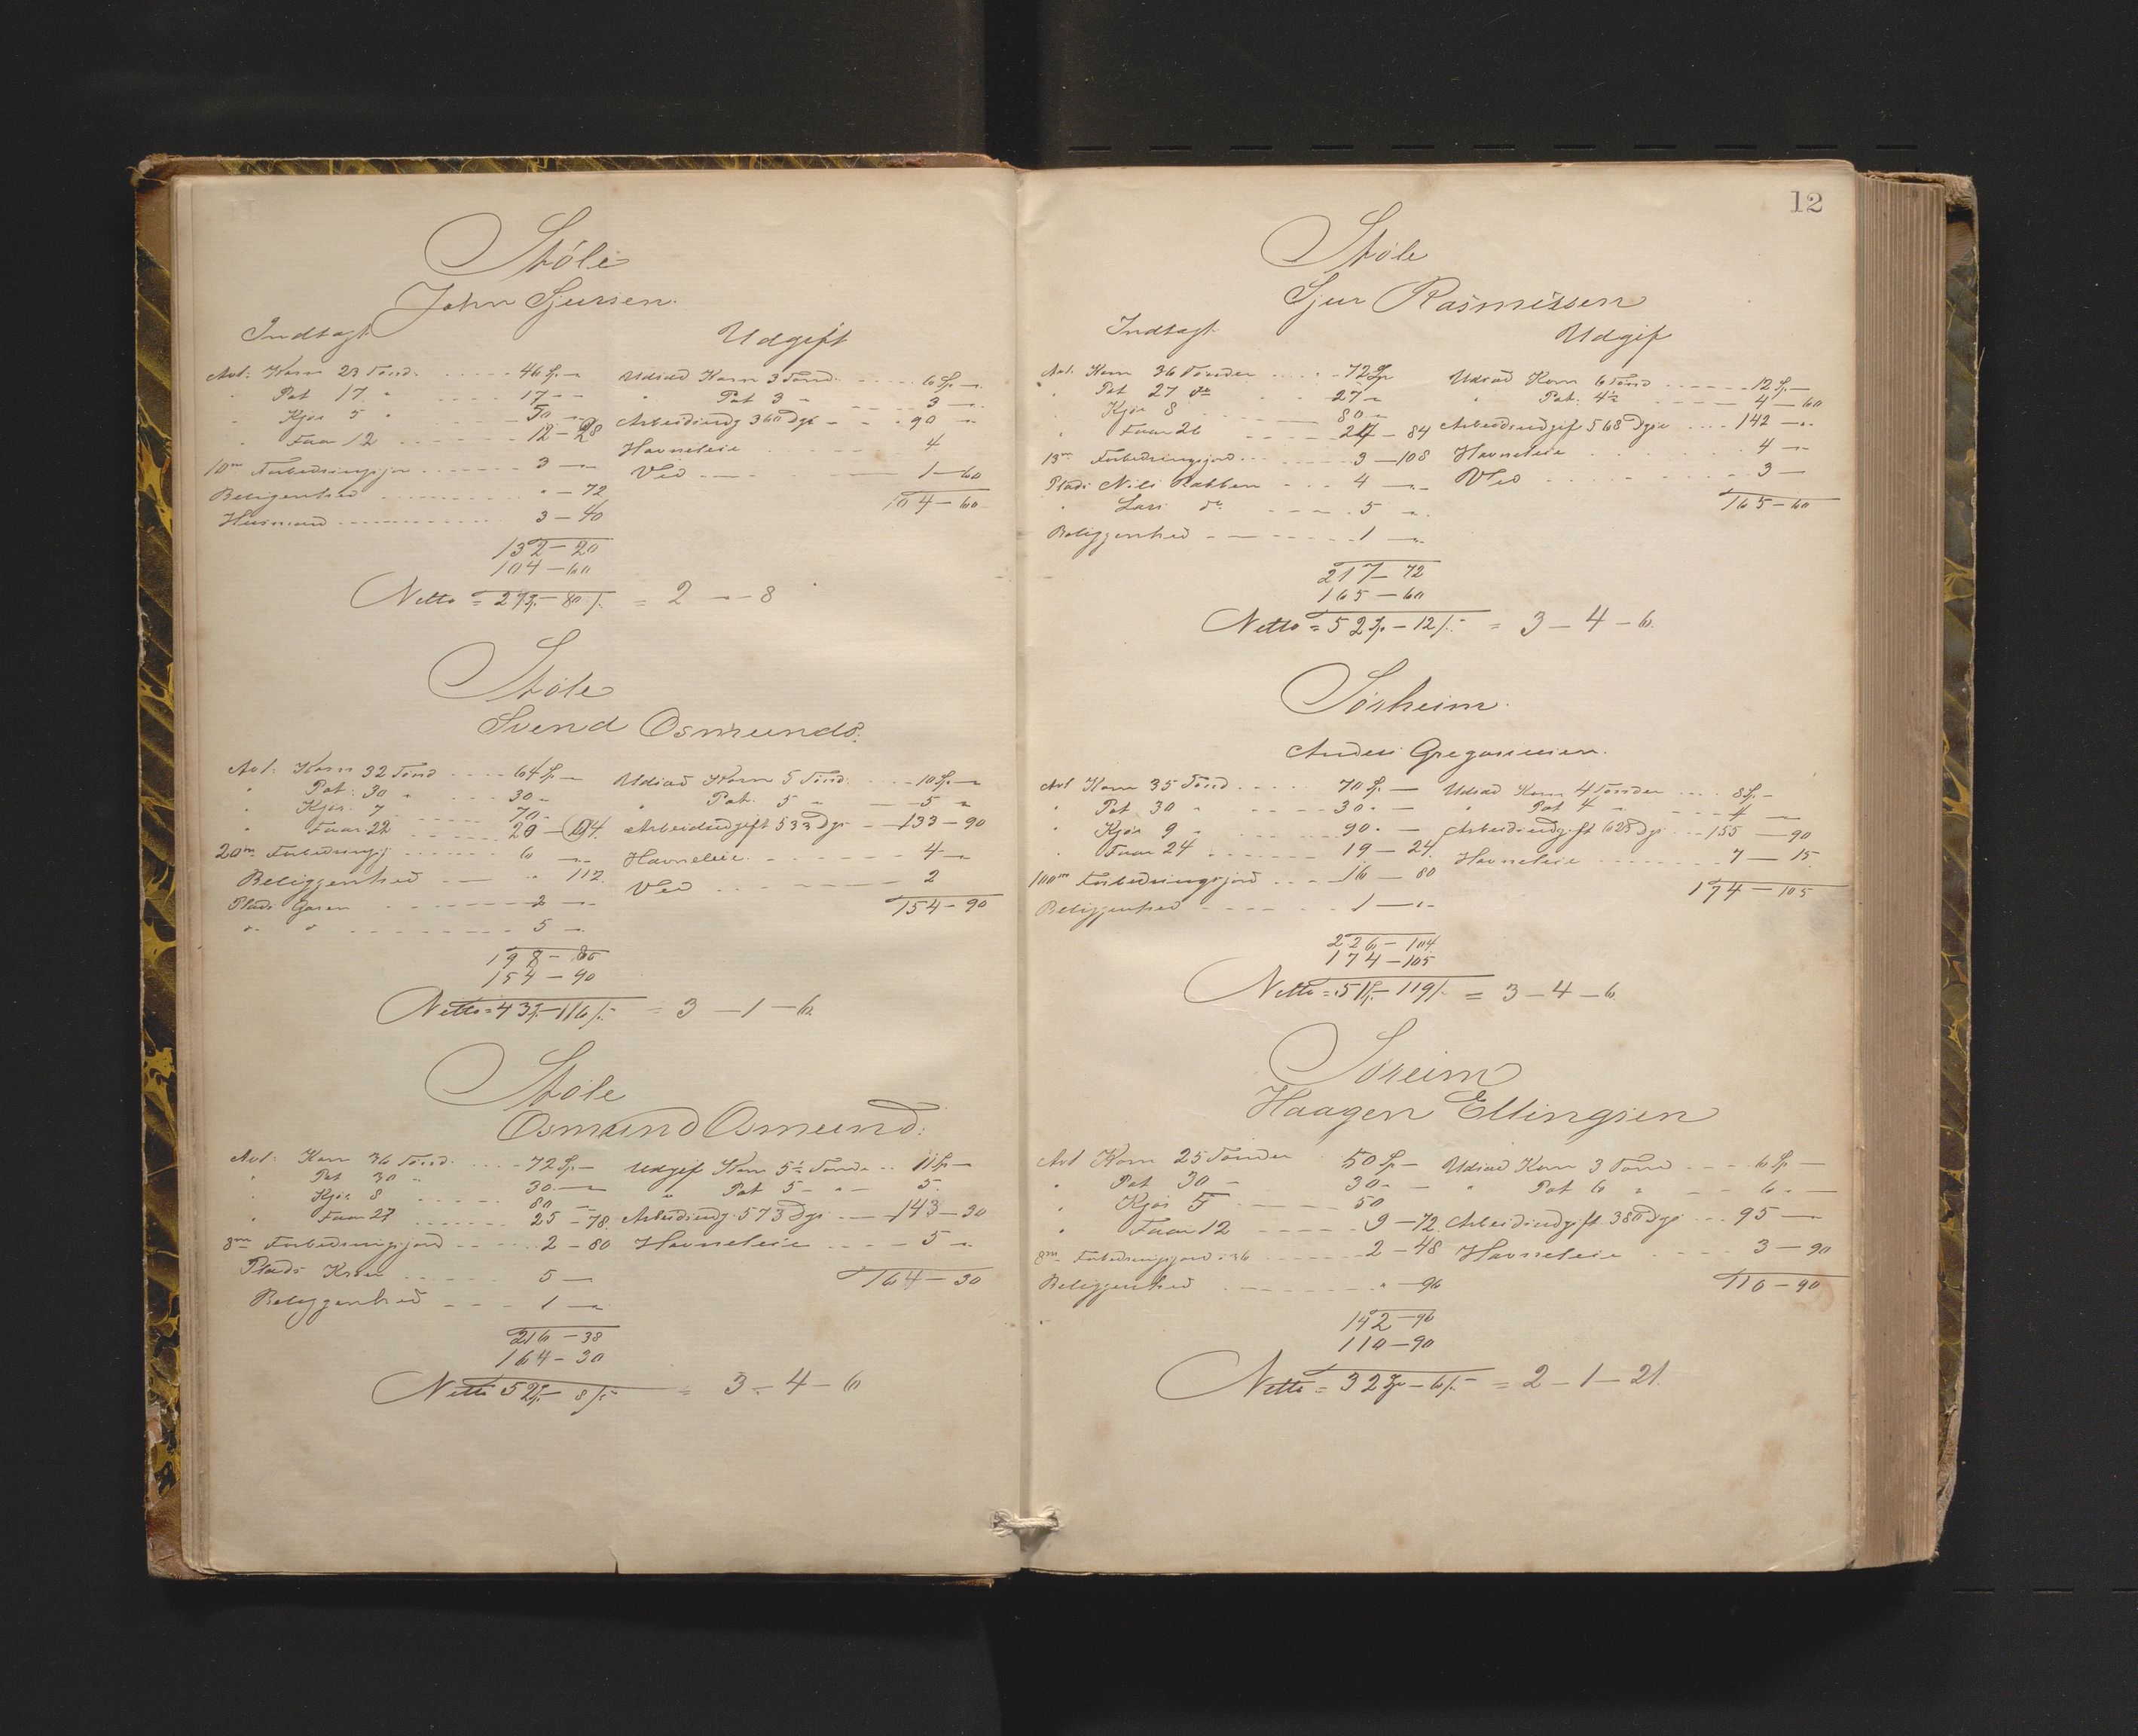 Støle
John Sjursen.
Indtægt Udgift
Avl: Korn 23 Tønd. 46 Sp. — Udsæd Korn 3 Tønd. 6 Sp. —
" Pot 17 " 17 — " Pot 3 " 3 —
" Kjør 5 " 50 — Arbeidsudg 360 Dge 90 —
" Faar 12 12 — 28 Havneleie 4
10 m Forbedringsjor 3 — Ved 1 — 60
Beligenhed " — 72 104 — 60
Husmand 3 — 40
132 — 20
104 — 60
Netto = 27 Sp. — 80 s. = 2 — " — 8
Støle
Svend Osmunds.
Avl: Korn 32 Tønd 64 Sp. — Udsæd Korn 5 Tønd. 10 Sp. —
" Pot: 30 " 30 — " Pot. 5 " — 5 "
" Kjør. 7 70 — Arbeidsudgift 533 Dge — 133 — 90
" Faar 22 20 — 94. Havneleie 4 —
20 m Forbedringsj 6 — Ved 2
Beliggenhed " 112. 154 — 90
Plads Garen 2 —
" " 5 —
198 — 86
154 — 90
Netto = 43 Sp. — 116 s. = 3 — 1 — 6.
Støle
Osmund Osmund.
Avl: Korn 36 Tønd. 72 Sp. — Udgif Korn 5½ Tønde 11 Sp —
" Pot 30 " 30. — " Pot 5 — " — 5.
" Kjør 8 80 — Arbeidsudg. 573 Dge — 143 — 30
" Faar 27 25 — 78. Havneleie 5 —
8 m Forbedringsjord 2 — 80 164 — 30
Plads 5 —
Beliggenhed 1 —
216 — 38
164 — 30
Netto 52 Sp. — 8 s. = 3 — 4 — 6
12
Støle
Sjur Rasmussen
Indtægt Udgif
Avl: Korn 36 Tønder 72 Sp Udsæd Korn 6 Tønd 12 Sp. —
" Pot 27 do 27 — " Pot: 4½ 4 — 60
" Kjør 8 80 — Arbeidsudgif 568 Dge 142 —
" Faar 26 24 — 84 Havneleie 4 —
13 m Forbedringsjord 3 — 108 Ved 3 —
Plads Nils Rabben 4 — 165 — 60
" Lars do 5 —
Beliggenhed 1 —
217 — 72
165 — 60
Netto = 52 Sp. — 12 s. = 3 — 4 — 6.
Sørheim.
Anders Gregoriussen.
Avl Korn 35 Tønd 70 Sp. — Udsæd Korn 4 Tønder 8 Sp. —
" Pot 30 " 30. — " Pot 4 " 4 —
" Kjør 9 " 90. — Arbeidsudgift 623 Dge 155 — 90
" Faar 24 19 — 24. Havneleie 7 — 15
100 m Forbedringsjord 16 — 80 174 — 105
Beliggenhed 1 —
226 — 104.
174 — 105
Netto = 51 Sp. — 119 s. = 3 — 4 — 6.
Søreim
Haagen Ellingsen
Avl Korn 25 Tønder 50 Sp. — Udsæd Korn 3 Tønd 6 Sp —
" Pot 30 — 30. — " Pot 6 " 6. —
" Kjør 5 50 Arbeidsudgift 380 Dge 95 —
" Faar 12 9 — 72. Havneleie 3 — 90
8 m Forbedringsjord: 36 2 — 48 110 — 90
Beliggenhed " — 96
142 — 96
110 — 90
Netto = 32 Sp — 6 s. = 2 — 1 — 21.